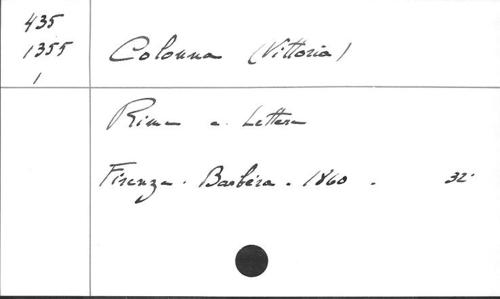 435
1355
1
Colonna (Vittoria)
Rime e Lettere
Firenze. Barbéra. 1860. 32°